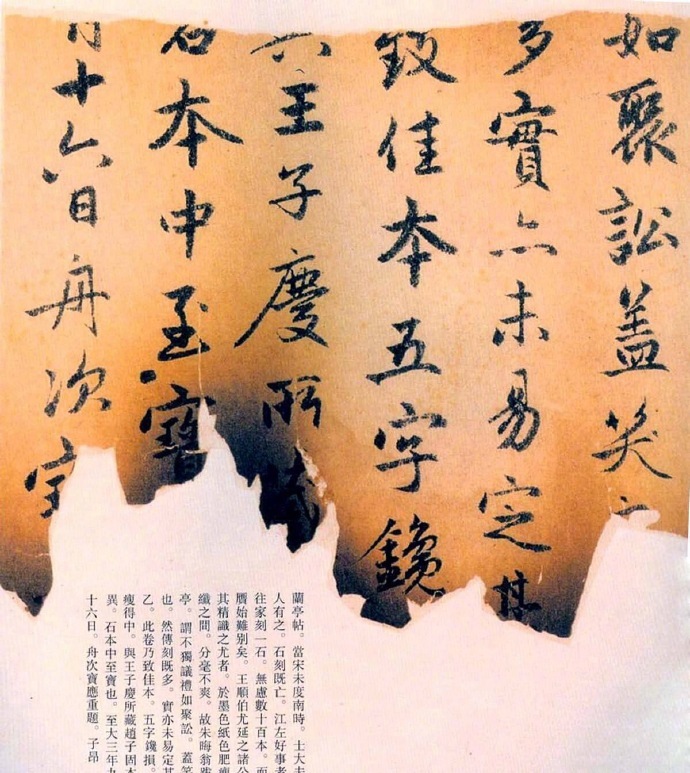 如聚訟蓋笑
多實亦未易定其
致佳本五字鑱
與王子慶所藏
石本中至寶
月十六日舟次寶
蘭亭帖。當宋未度南時。士大夫
人有之。石刻既亡。江左好事者
往家刻一石。無慮數十百本。而
贋始難別矣。王順伯尤延之諸公
其精識之尤者。於墨色紙色肥瘦
纖之間。分毫不爽。故朱晦翁跋
亭。謂不獨議禮如聚訟。蓋笑
也。然傳刻既多。實亦未易定其
乙。此卷乃致佳本。五字鑱損。
瘦得中。與王子慶所藏趙子固本
異。石本中至寶也。至大三年九
十六日。舟次寶應重題。子昂